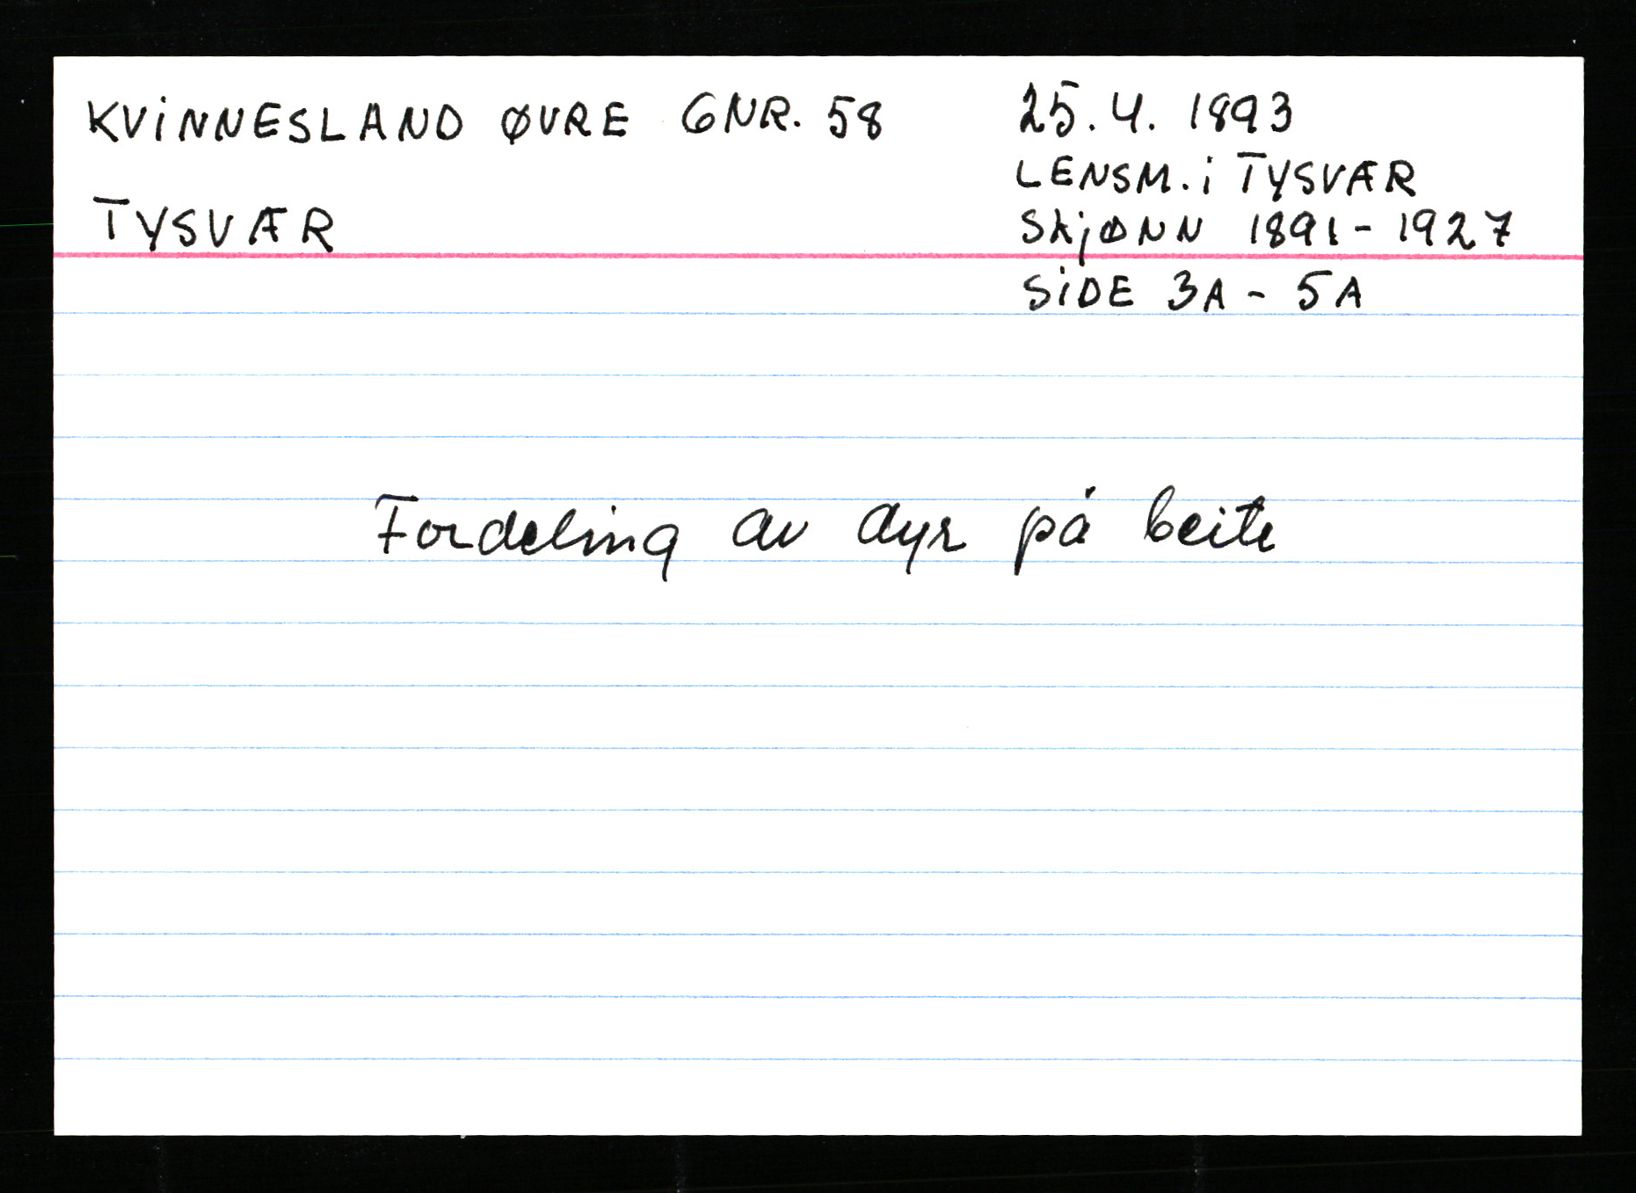 KVINNESLAND ØVRE GNR. 58
TYSVÆR
25.4. 1893
LENSM. i TYSVÆR
SKJØNN 1891-1927
SIDE 3A - 5A
Fordeling av dyr på beite